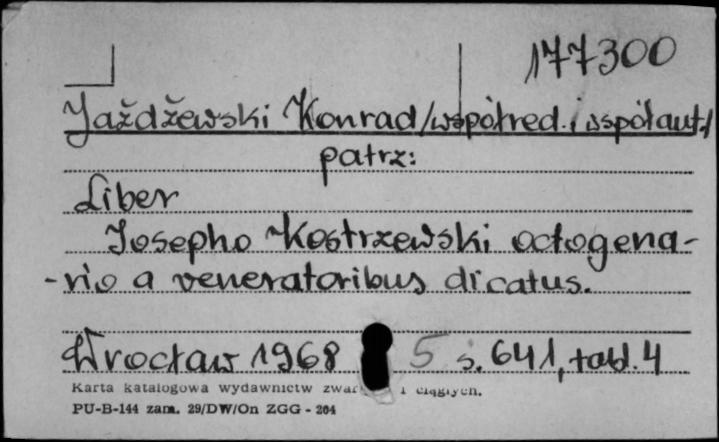 177300
Jażdżewski Konrad/współred. i współaut./
patrz:
Liber
Josepho Kostrzewski octogena-
-rio a veneratoribus dicatus.
Wrocław 1968 5 s. 641, tabl. 4
Karta katalogowa wydawnictw i ciągłych.
PU-B-144 zam. 29/DW/On ZGG - 264